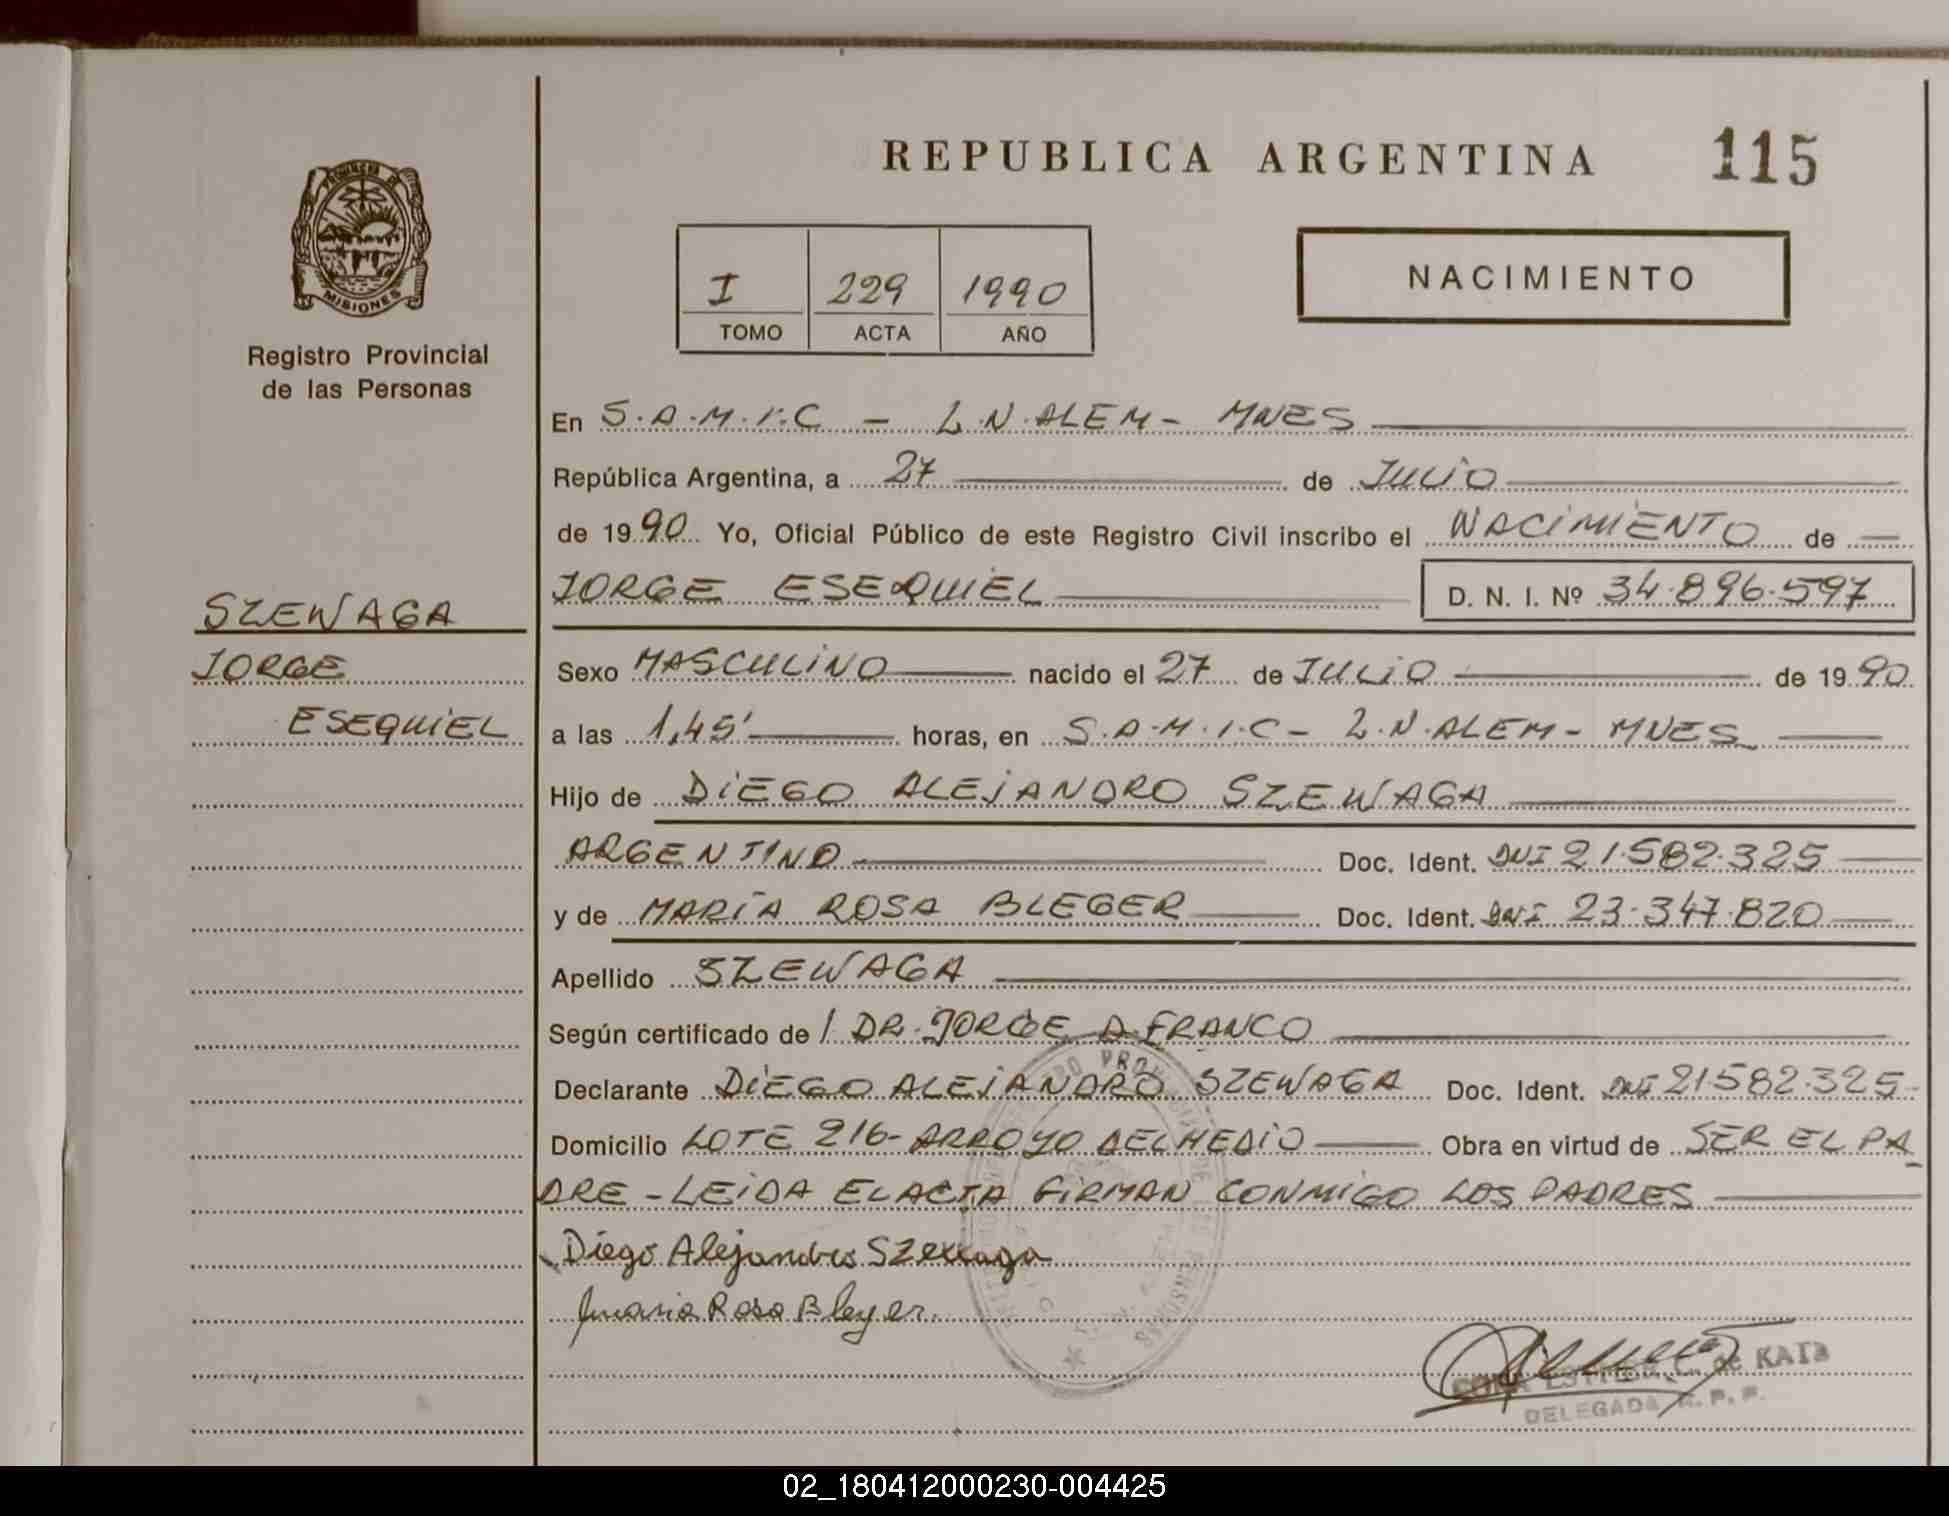 REPUBLICA ARGENTINA 115
PROVINCIA DE
MISIONES
Registro Provincial
de las Personas
I 229 1990
TOMO ACTA AÑO
NACIMIENTO
En S.A.M.I.C - L.N.ALEM - MNES
República Argentina, a 27 de JULIO
de 1990 Yo, Oficial Público de este Registro Civil inscribo el NACIMIENTO de
JORGE ESEQUIEL D. N. I. Nº 34.896.597
SZEWAGA
JORGE
ESEQUIEL
Sexo MASCULINO nacido el 27 de JULIO de 1990
a las 1,45' horas, en S.A.M.I.C - L.N.ALEM - MNES
Hijo de DIEGO ALEJANDRO SZEWAGA
ARGENTINO Doc. Ident. DNI 21.582.325
y de MARÍA ROSA BLEGER Doc. Ident. DNI 23.347.820
Apellido SZEWAGA
Según certificado de / DR. JORGE A. FRANCO
Declarante DIEGO ALEJANDRO SZEWAGA Doc. Ident. DNI 21.582.325-
Domicilio LOTE 216- ARROYO DEL MEDIO Obra en virtud de SER EL PA
DRE - LEIDA EL ACTA FIRMAN CONMIGO LOS PADRES
Diego Alejandro Szewaga
Maria Rosa Bleyer.
ESTHER C. de KAIB
DELEGADA R. P. P.
02_180412000230-004425